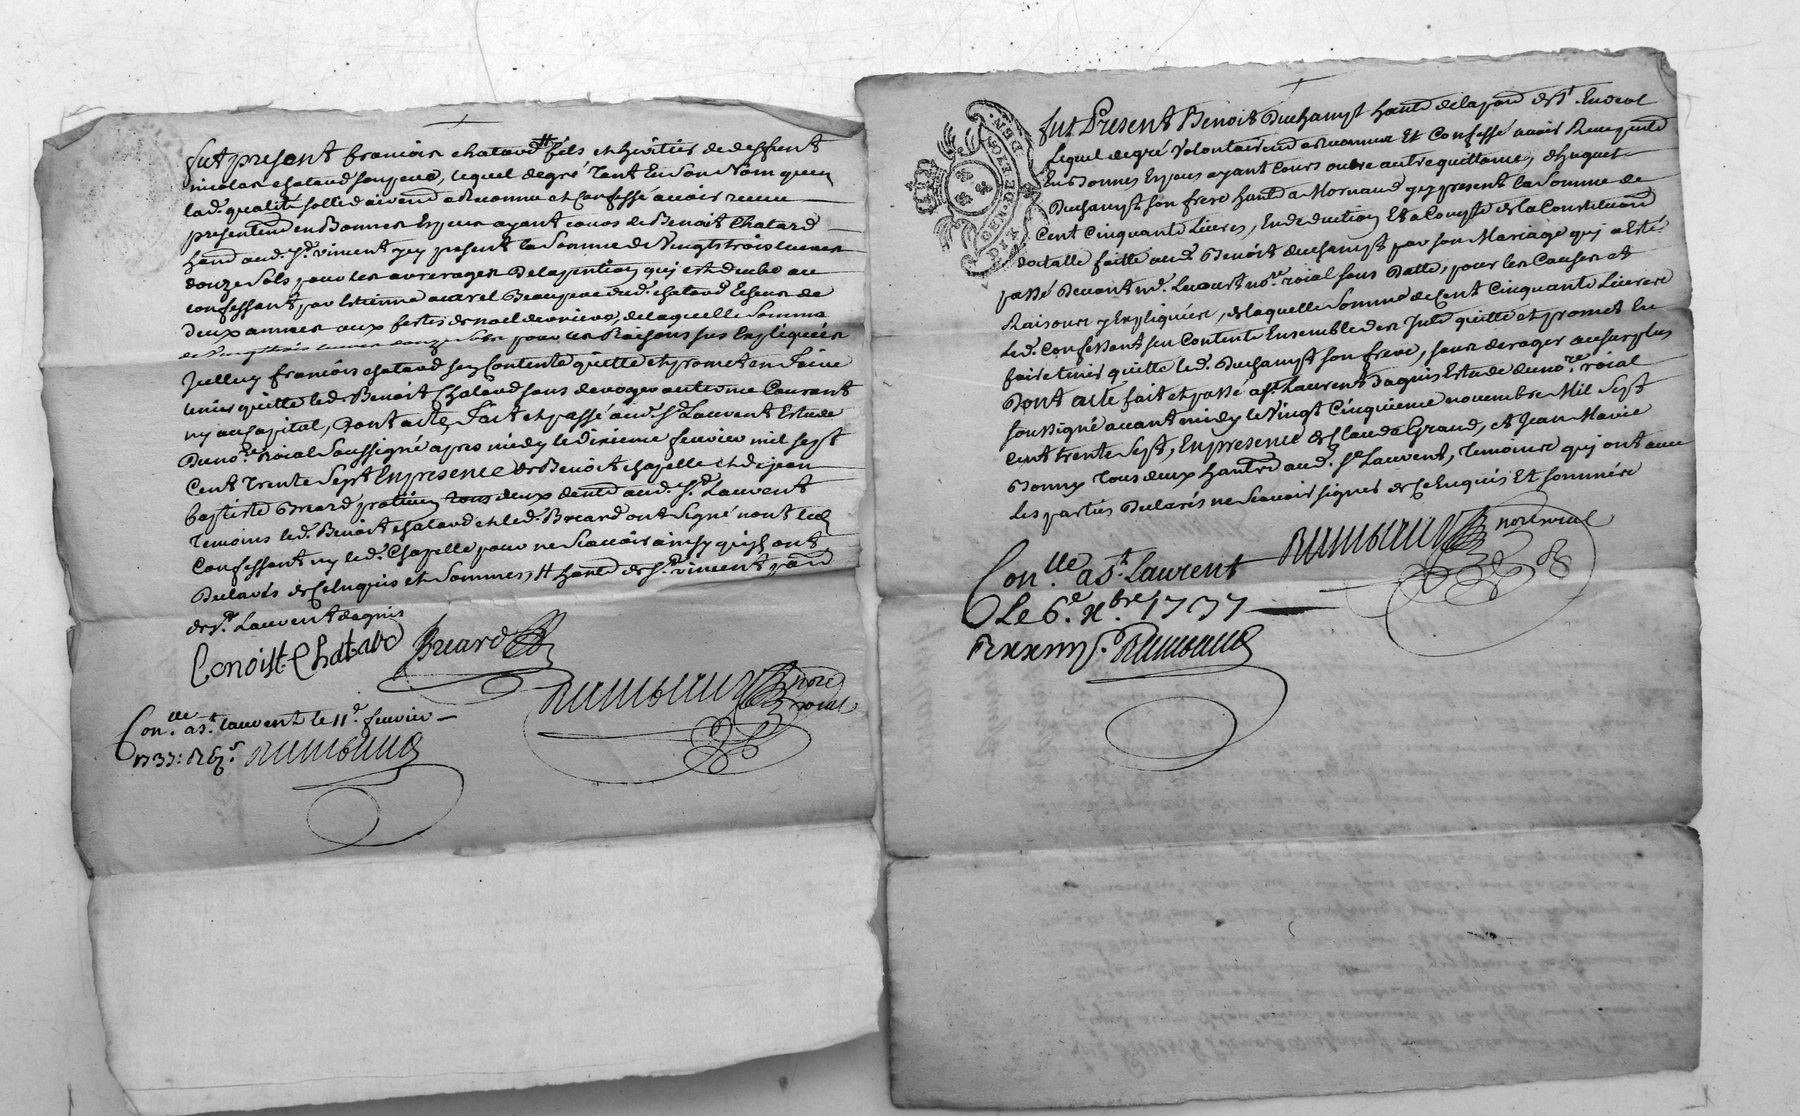 fut present francois chatard # fils et heritier de deffunt
nicolas chatard son pere, lequel de gré tant en son Nom quen
lad. qualité a Reconnu et Confessé avoir receu
presentem.t en Bonnes Especes ayant cours de Benoit Chatard
hant aud. St. vincent icy present la Somme de Vingt trois livres
douze Sols pour les arrerages de la pention qui est deube au
confessant par Estienne Beaupere dud. chatard Echeus de
Deux années aux festes de noel dernieres, de laquelle Somme
de vingt trois livres douze Sols pour les Raisons sus Expliquées
Icelluy francois chatard sen Contente quitte et promet en faire
tenir quitte led. Benoit Chatard sans deroger au terme Courant
ny au Capital, Dont acte, fait et passé aud. St. Laurent Estude
Du no.re Roial Soussigné apres midy le dixieme fevrier mil sept
Cent Trente Sept En presence de Benoit chapelle et de jean
baptiste Breard praticien tous deux dud. St. Laurent
Temoins led. Benoit chatard et led. Breard ont Signé non led.
Confessant ny led. Chapelle pour ne Scavoir ainsy quils ont
Declarés de ce Enquis et Sommés, # hant de St. vincent
de St. Laurent daguis
Benoist Chatard Breard
no.re roial
Con.lle a St. Laurent le 11e fevrier
1737: R
fut Present Benoit Duchampt hant de la par. de St. Endeol
Lequel de gré Volontairem.t a Reconnu Et Confessé avoir Receu
En Bonnes Especes ayant Cours outre autre quittance, d'huguet
Duchampt son frere hant a Mornand icy present la Somme de
Cent Cinquante Livres, En deduction Et a Compte de la Constitution
dotalle faitte aud. Benoit duchampt par son Mariage qui a Esté
passé Devant M.e Lecourt no.re roial sous Datte, pour les Causes et
Raisons y Expliquées, de laquelle Somme de Cent Cinquante Livres
Led. Confessant sen Contente Ensemble des quitte et promet En
faire tenir quitte led. Duchampt son frere, sans deroger au surplus
Dont acte fait et passé a St. Laurent Daguis Estude du no.re roial
soussigné avant midy le Vingt Cinquieme novembre Mil Sept
Cent trente Sept, En presence de Claude Giraud, et Jean Marie
Bonny tous deux hants aud. St. Laurent, Temoins qui ont avec
Les parties Declarés ne Scavoir signer de ce Enquis Et sommés
no.re roial
Con.lle a St. Laurent
Le 6.e x.bre 1737